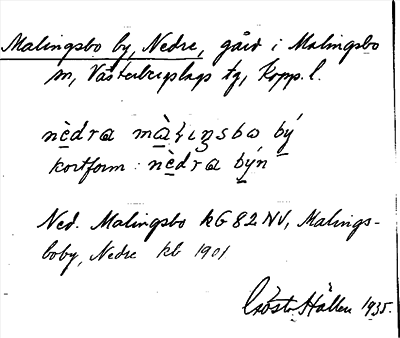 Malingsbo by, Nedre, gård i Malingsbo
sn, Västerbergslags tg, Kopp. l.
nèdra màliŋsbo bý
kortform: nèdra býn
Ned. Malingsbo kG 82 NV, Malings-
boby, Nedre kb 1901
Gösta Hållen 1935.